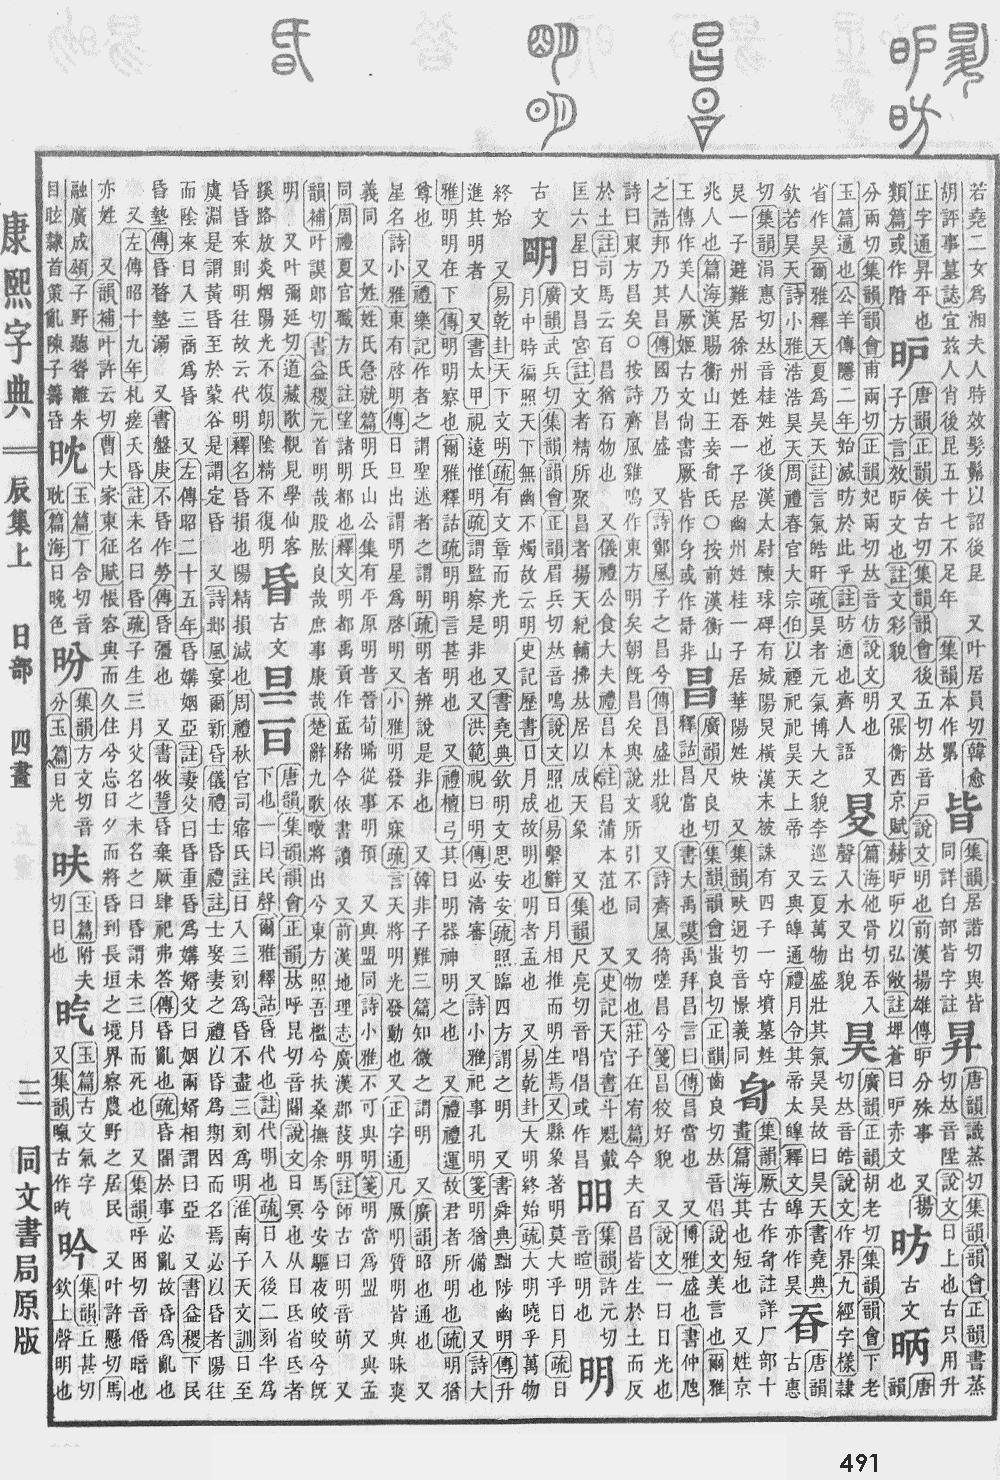 若堯二女爲湘夫人時效髣髴以詔後昆 又叶居員切韓愈
胡評事墓誌宜兹人肖後昆五十七不足年 集韻本作
皆 集韻居諧切與皆同詳白部皆字註
昇 唐韻識蒸切集韻韻會正韻書蒸切𠀤音陞說文日上也古只用升
正字通昇平也
類篇或作阩
昈 唐韻正韻侯古切集韻韻會後五切𠀤音戸說文明也前漢揚雄傳昈分殊事 又揚子方言效昈文也註文彩貌 又張衡西京賦赫昈昈以弘敞註埤蒼曰昈赤文也
昉 古文 昞 唐韻
分兩切集韻韻會甫兩切正韻妃兩切𠀤音仿說文明也 又
玉篇適也公羊傳隱二年始滅昉於此乎註昉適也齊人語
㫚 篇海他骨切吞入聲入水又出貌
昊 廣韻正韻胡老切集韻韻會下老切𠀤音皓說文作界九經字樣隸
省作昊爾雅釋天夏爲昊天註言氣皓旰疏昊者元氣博大之貌李巡云夏萬物盛壯其氣昊昊故曰昊天書堯典
欽若昊天詩小雅浩浩昊天周禮春官大宗伯以禋祀祀昊天上帝 又與皥通禮月令其帝太皥釋文皥亦作昊
昋 唐韻古惠
切集韻涓惠切𠀤音桂姓也後漢太尉陳球碑有城陽炅橫漢末被誅有四子一守墳墓姓
炅一子避難居徐州姓昋一子居幽州姓桂一子居華陽姓炔 又集韻畎迥切音憬義同
㫷 集韻厥古作㫷註詳厂部十畫篇海其也短也 又姓京
兆人也篇海漢賜衡山王妾㫷氏○按前漢衡山
王傳作美人厥姬古文尙書厥皆作㫷或作㫷非
昌 廣韻尺良切集韻韻會蚩良切正韻齒良切𠀤音倡說文美言也爾雅釋詁昌當也書大禹謨禹拜昌言曰傳昌當也 又博雅盛也書仲虺
之誥邦乃其昌傳國乃昌盛 又詩鄭風子之昌兮傳昌盛壯貌 又詩齊風猗嗟昌兮箋昌狡好貌 又說文一曰日光也
詩曰東方昌矣○按詩齊風雞鳴作東方明矣朝旣昌矣與說文所引不同 又物也莊子在宥篇今夫百昌皆生於土而反
於土註司馬云百昌猶百物也 又儀禮公食大夫禮昌本註昌蒲本菹也 又史記天官書斗魁戴
匡六星曰文昌宮註文者精所聚昌者揚天紀輔拂𠀤居以成天象 又集韻尺亮切音唱倡或作昌
昍 集韻許元切音暄明也
明 古文 朙 廣韻武兵切集韻韻會正韻眉兵切𠀤音鳴說文照也易繫辭日月相推而明生焉又縣象著明莫大乎日月疏日
月中時徧照天下無幽不燭故云明史記歷書日月成故明也明者孟也 又易乾卦大明
終始 又易乾卦天下文明疏有文章而光明 又書堯典欽明文思安安疏照臨四方謂之明 又書舜典黜陟幽明傳升
進其明者 又書太甲視遠惟明疏謂監察是非也又洪範視曰明傳必淸審 又詩小雅祀事孔明箋明猶備也 又詩大
雅明明在下傳明明察也爾雅釋詁疏明明言甚明也 又禮檀弓其曰明器神明之也 又禮禮運故君者所明也疏明猶
尊也 又禮樂記作者之謂聖述者之謂明疏明者辨說是非也 又韓非子難三篇知微之謂明 又廣韻昭也通也 又
星名詩小雅東有啓明傳日旦出謂明星爲啓明又小雅明發不寐疏言天將明光發動也又正字通凡厥明質明皆與昧爽
義同 又姓姓氏急就篇明氏山公集有平原明普晉荀晞從事明預 又與盟同詩小雅不可與明箋明當爲盟 又與孟
同周禮夏官職方氏註望諸明都也釋文明都禹貢作孟豬今依書讀 又前漢地理志廣漢郡葭明註師古曰明音萌 又
韻補叶謨郎切書益稷元首明哉股肱良哉庶事康哉楚辭九歌暾將出兮東方照吾檻兮扶桑撫余馬兮安驅夜皎皎兮旣
明 又叶彌延切道藏歌觀見學仙客
蹊路放炎烟陽光不復朗陰精不復明
昏 古文 唐韻集韻韻會正韻𠀤呼昆切音閽說文日冥也从日氐省氐者下也一曰民聲爾雅釋詁昏代也註代明也疏日入後二刻半爲
昏昏來則明往故云代明釋名昏損也陽精損減也周禮秋官司寤氏註日入三刻爲昏不盡三刻爲明淮南子天文訓日至
虞淵是謂黃昏至於蒙谷是謂定昏 又詩邶風宴爾新昏儀禮士昏禮註士娶妻之禮以昏爲期因而名焉必以昏者陽往
而陰來日入三商爲昏 又左傳昭二十五年昏媾姻亞註妻父曰昏重昏爲媾婿父曰姻兩婿相謂曰亞 又書益稷下民
昏墊傳昏瞀墊溺 又書盤庚不昏作勞傳昏彊也 又書牧誓昏棄厥肆祀弗答傳昏亂也疏昏闇於事必亂故昏爲亂也
又左傳昭十九年札瘥夭昏註未名曰昏疏子生三月父名之未名之曰昏謂未三月而死也 又集韻呼困切音惛暗也
亦姓 又韻補叶許云切曹大家東征賦悵容與而久住兮忘日夕而將昏到長垣之境界察農野之居民 又叶許懸切馬
融廣成頌子野聽聳離朱
目眩隷首策亂陳子籌昏
㫛 玉篇丁含切音耽篇海日晚色
昐 集韻方文切音分玉篇日光
㫙 玉篇附夫切日也
㫓 玉篇古文氣字 又集韻㬠古作㫓
昑 集韻丘甚切欽上聲明也
康熙字典
辰集上 日部 四畫
三
同文書局原版
491